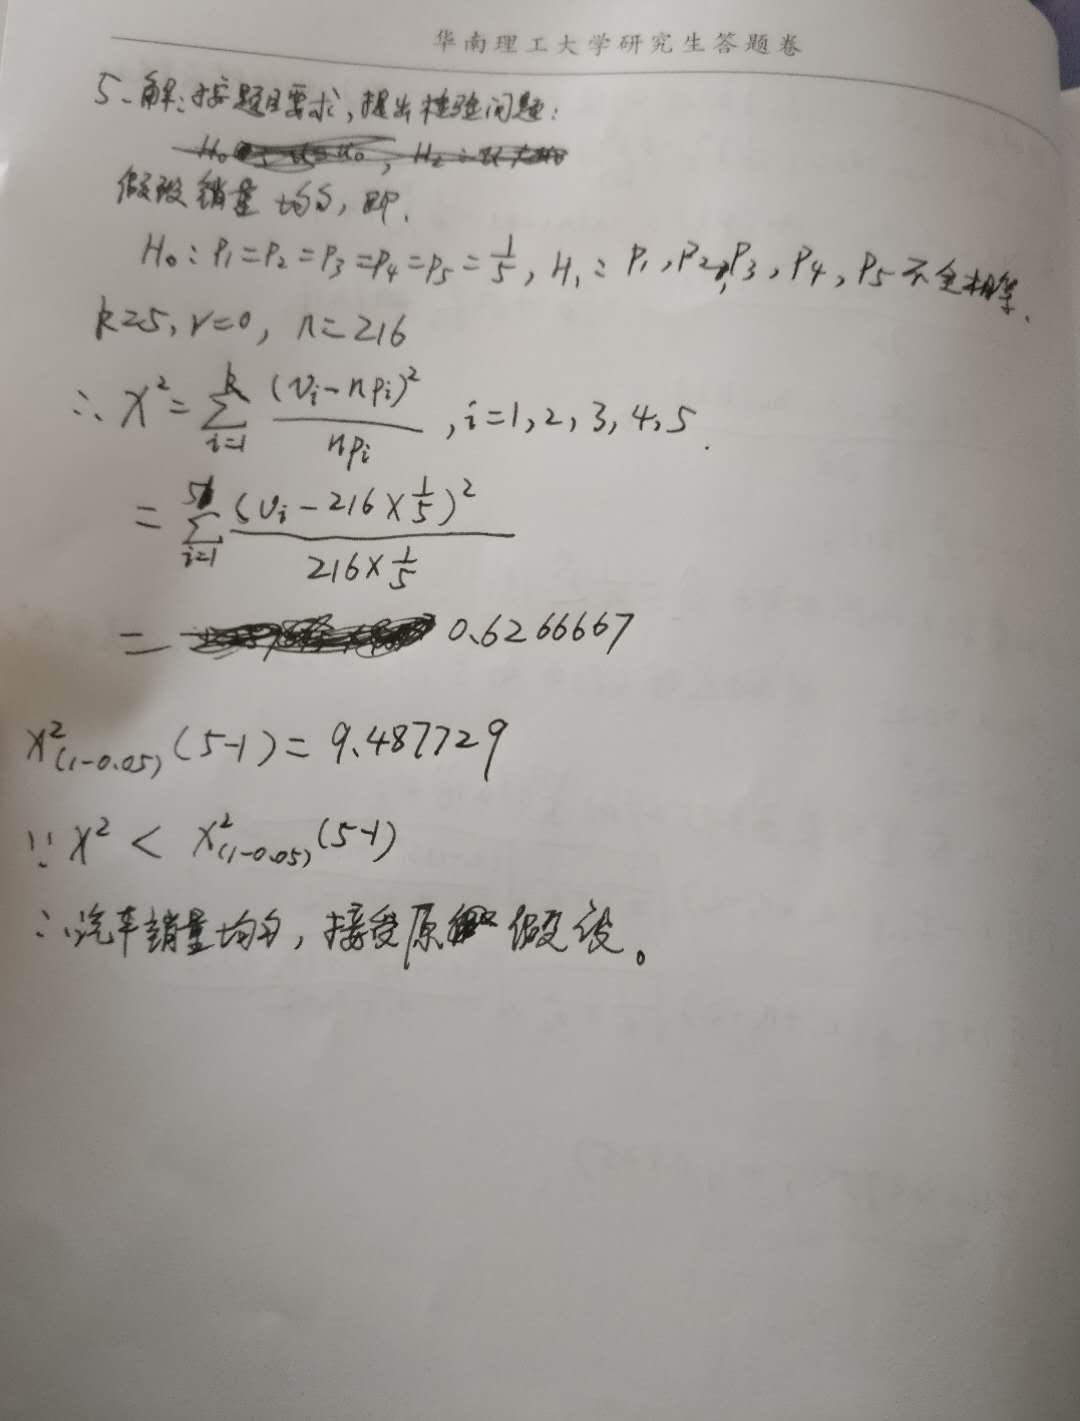 华南理工大学研究生答题卷
5、解:按题目要求,提出检验问题:
假设销量均匀,即、
H₀:P₁=P₂=P₃=P₄=P₅=1/5,H₁:P₁,P₂,P₃,P₄,P₅不全相等、
k=5,r=0,n=216
∴χ²=∑_{i=1}^{k} (v_i-np_i)²/(np_i),i=1,2,3,4,5.
=∑_{i=1}^{5} (v_i-216×1/5)²/(216×1/5)
=0.6266667
χ²₍₁₋₀.₀₅₎(5-1)=9.487729
∵χ²<χ²₍₁₋₀.₀₅₎(5-1)
∴汽车销量均匀,接受原假设。